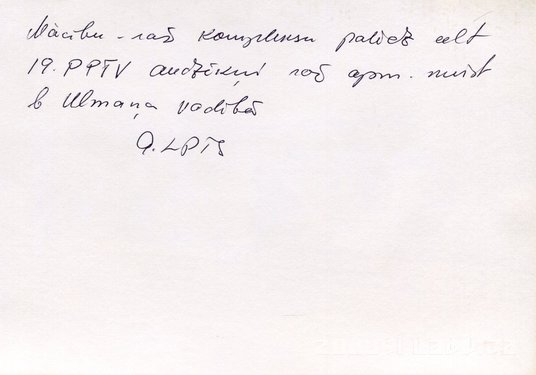 Mācību - raž kompleksu palīdz celt
19. PPTV audzēkņi raž apm. meist
b Ulmaņa vadībā
A. LPTS